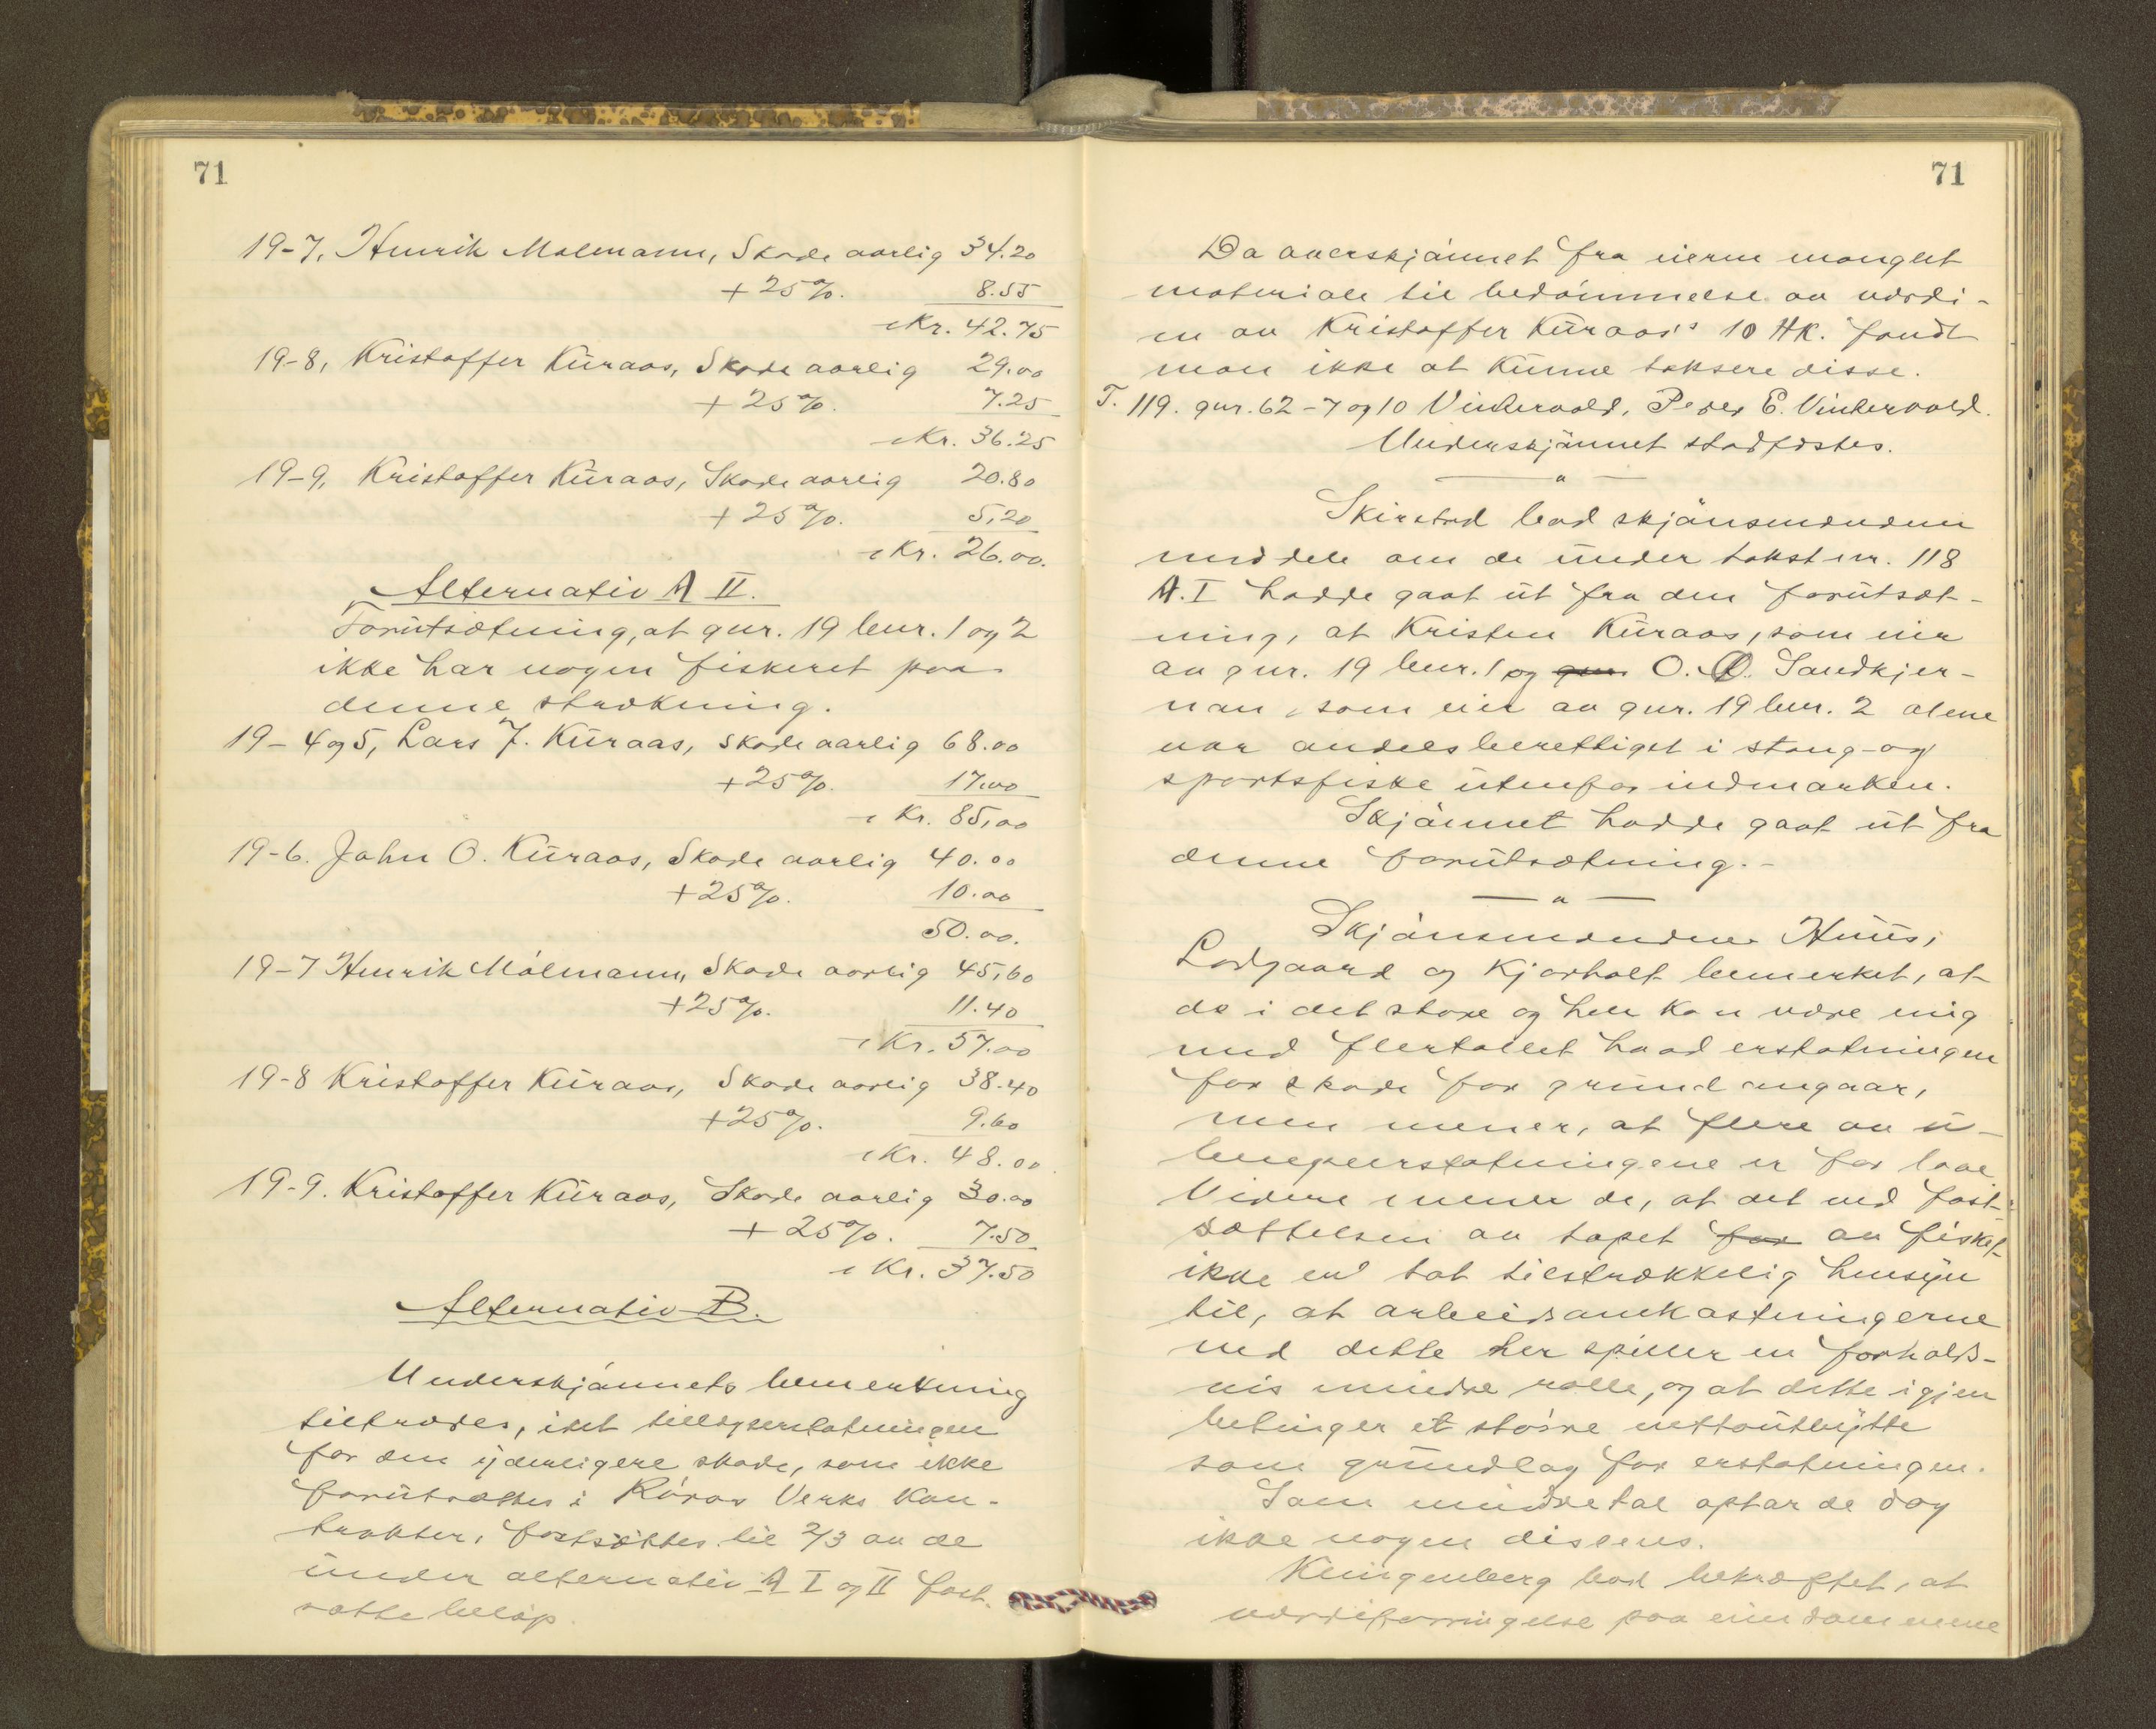 71
19-7, Henrik Molmann, Skade aarlig 34.20
+25%. 8.55
Kr. 42.75
19-8, Kristoffer Kuraas, Skade aarlig 29.00
+25%. 7.25
Kr. 36.25
19-9, Kristoffer Kuraas, Skade aarlig 20.80
+25%. 5,20
Kr. 26.00.
Alternativ A II.
Forutsætning, at gnr. 19 bnr. 1 og 2
ikke har nogen fiskeret paa
denne strækning.
19-4 og 5, Lars J. Kuraas, skade aarlig 68.00
+25%. 17.00
Kr. 85,00
19-6. John O. Kuraas, Skade aarlig 40.00
+25%. 10.00
50.00.
19-7 Henrik Mólmann, Skade aarlig 45,60
+25%. 11.40
Kr. 57.00
19-8 Kristoffer Kuraas, Skade aarlig 38.40
+25%. 9.60
Kr. 48.00.
19-9. Kristoffer Kuraas, Skade aarlig 30.00
+25%. 7.50
Kr. 37.50
Alternativ B.
Underskjønnets bemerkning
tiltrædes, idet tillægserstatningen
for den yderligere skade, som ikke
forutsættes i Røros Verks kon-
trakter, fastsættes til 2/3 av de
under alternativ A I og II fast-
satte beløp.
71
Da overskjønnet fra eierne manglet
materiale til bedømmelse av værdi-
en av Kristoffer Kuraas's 10 HK. fandt
man ikke at kunne taksere disse.
T. 119. gnr. 62-7 og 10 Vintervold, Peder E. Vintervold.
Underskjønnet stadfæstes.
Skirstad bad skjønsmændene
meddele om de under takst nr. 118
A. I hadde gaat ut fra den forutsæt-
ning, at Kristen Kuraas, som eier
av gnr. 19 bnr. 1 og gnr. O. O. Sandkjer-
nan, som eier av gnr. 19 bnr. 2 alene
var andelsberettiget i stang- og
sportsfiske utenfor indmarken.
Skjønnet hadde gaat ut fra
denne forutsætning.-
Skjønsmændene Huus,
Lodgaard og Kjørholt bemerket, at
de i det store og hele kan være enig
med flertallet hvad erstatningen
for skade for grund angaar,
men mener, at flere av u-
lempeerstatningene er for lave
Videre mener de, at det ved fast-
sættelsen av tapet for av fisket
ikke er tat tilstrækkelig hensyn
til, at arbeidsomkostningerne
ved dette her spiller en forholds-
vis mindre rolle, og at dette igjen
betinger et større nettoutbytte
som grundlag for erstatningen.
Som mindretal optar de dog
ikke nogen dissens.
Klingenberg bad bekræftet, at
værdiforringelse paa eiendommene